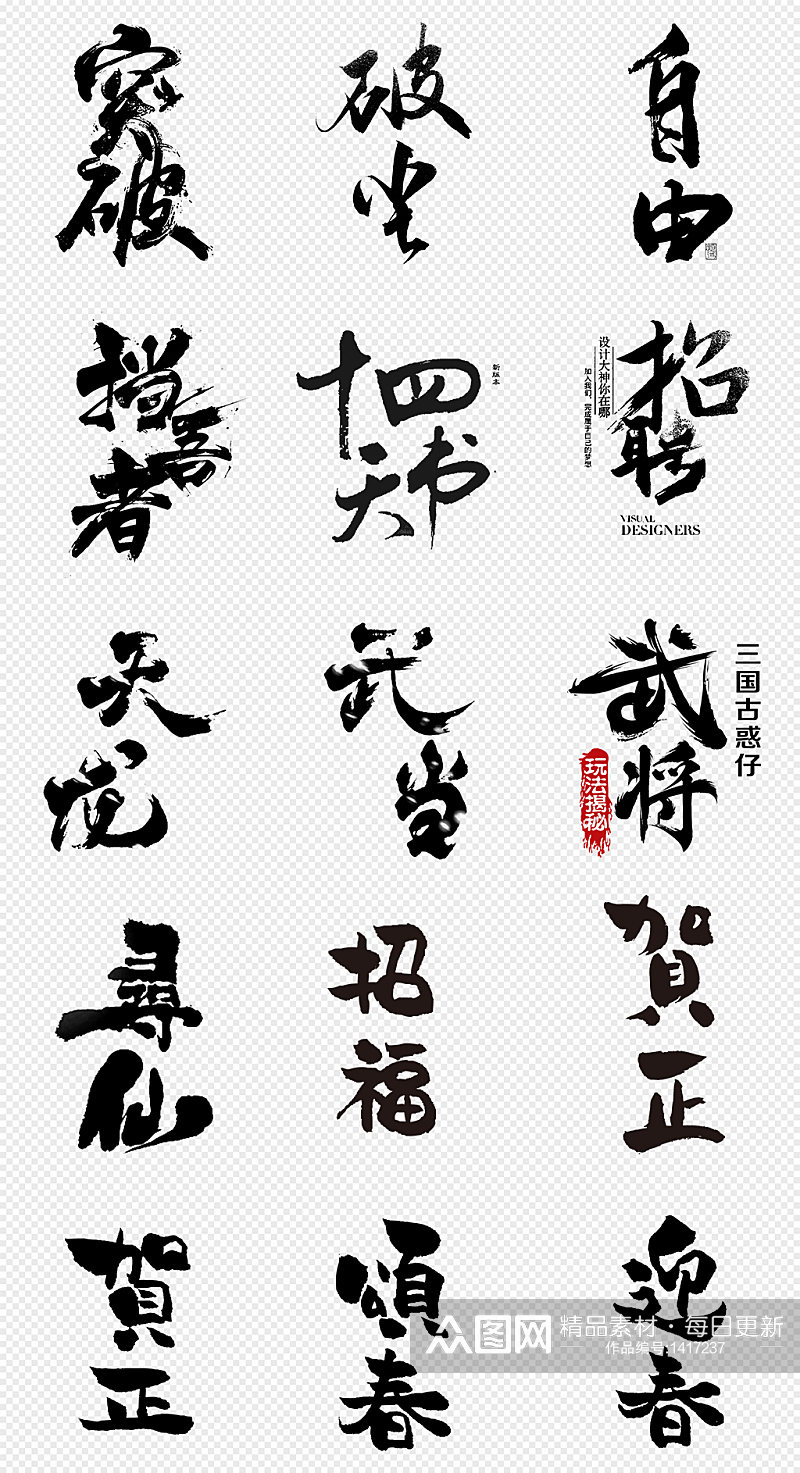 突破
破尘
自由
挡吾者
十四天书
新版本
招聘
设计大神你在哪
加入我们，完成属于自己的梦想
VISUAL
DESIGNERS
天龙
武当
武将
三国古惑仔
玩法揭秘
尋仙
招福
賀正
賀正
頌春
迎春
众图网
精品素材·每日更新
作品编号:1417237